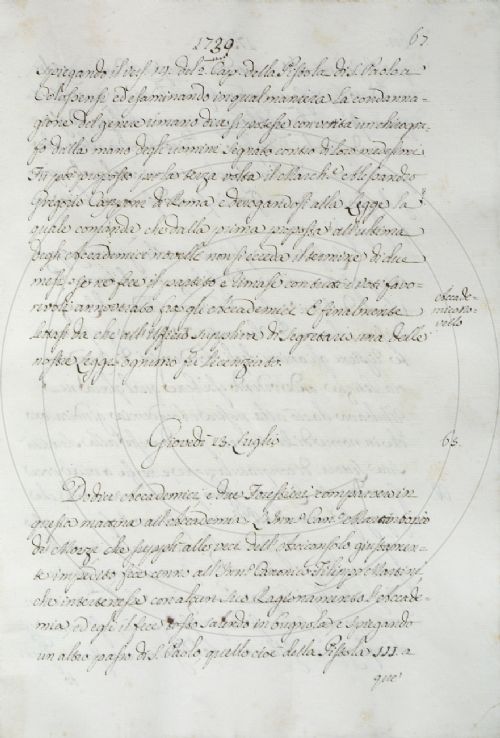 1729.
67
Spiegando il vers. 14. del 2. Cap. della Pistola di S. Paolo a
Colossensi ed esaminando in qual maniera la condanna-
gione del genere umano dica si potesse con verità un chirogra-
fo dalla mano degli uomini segnato contro di loro medesimi
Fu poi proposto per la terza volta il March.e Alessandro
Gregorio Capponi di Roma e derogandosi alla Legge la
quale comanda che dalla prima proposta all'ultima
degli Accademici novelli non si ecceda il termine di due
mesi, se ne fece il partito e rimase con tutti i voti favo-
revoli annoverato fra gli Accademici. E finalmente
letta da chi all'Ufizio suppliva di Segretario una delle
nostre Leggi ognuno fu licenziato.
Accade-
mico no-
vello
Giovedì 28. Luglio
68.
Dodici Accademici e due Forestieri comparvero in
questa mattina all'Accademia. L'Ill.mo Can.co
che supplì alle veci dell'Arciconsolo giustamen-
te impedito fece cenno all'Ill.mo Canonico Filippo Martini,
che intertenesse con alcun suo Ragionamento l'Accade-
mia ed egli il fece tosto salendo in bugnola e spiegando
un altro passo di S. Paolo quello cioè della Pistola III. a
que'